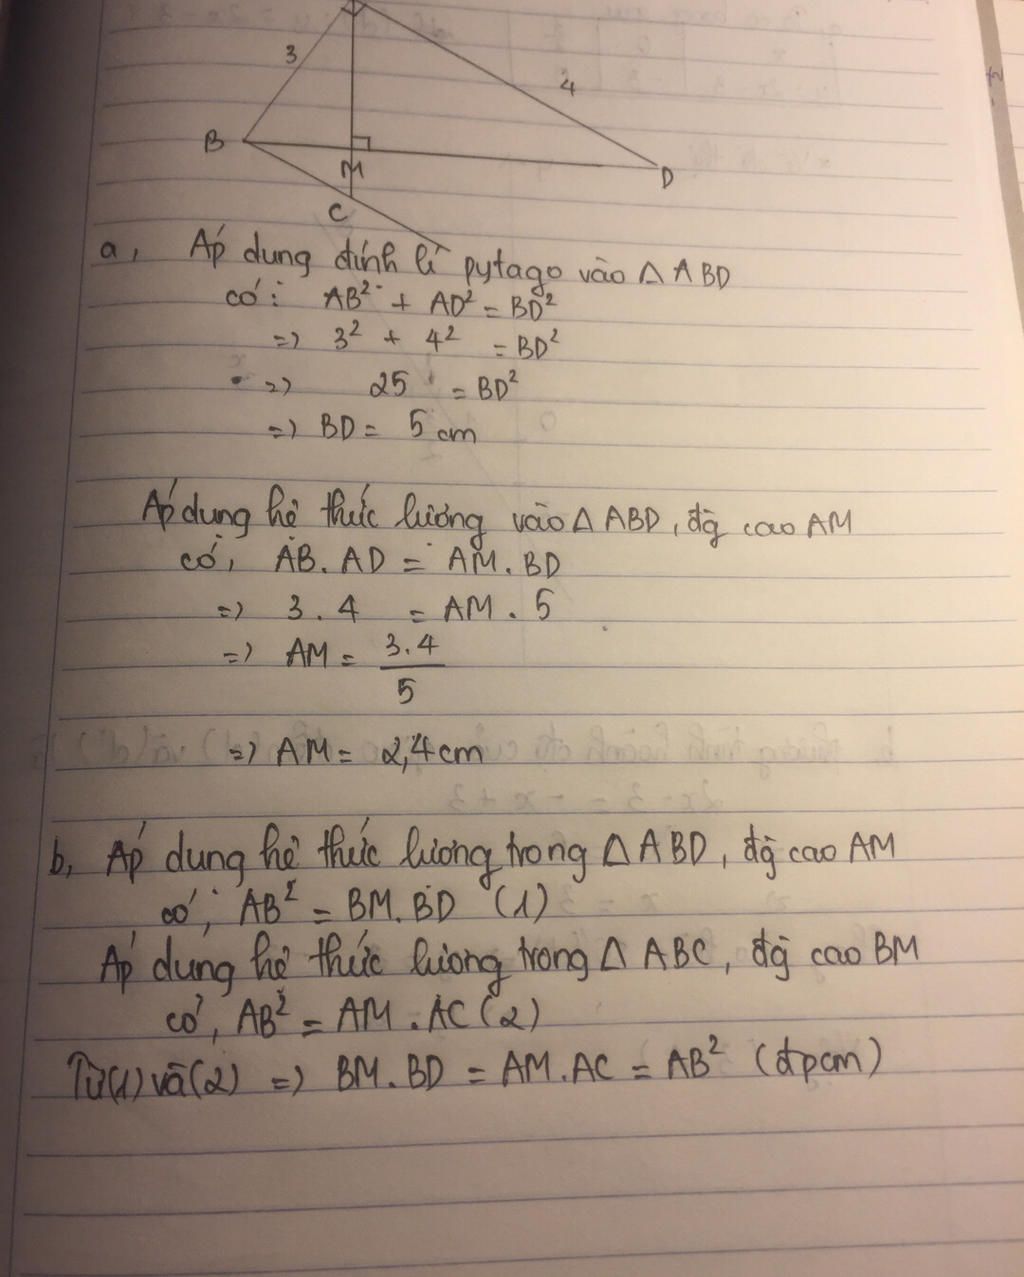 3
4
B
M
D
C
a, Áp dung đính lí pytago vào △ ABD
có: AB² + AD² = BD²
=> 3² + 4² = BD²
=> 25 = BD²
=> BD = 5 cm
Áp dung hệ thức lương vào △ ABD, đg cao AM
có, AB. AD = AM. BD
=> 3. 4 = AM. 5
=> AM = 3.4
5
=> AM = 2,4cm
b, Áp dung hệ thức lương trong △ ABD, đg cao AM
có; AB² = BM. BD (1)
Áp dung hệ thức lương trong △ ABC, đg cao BM
có, AB² = AM. AC (2)
Từ(1) và(2) => BM. BD = AM. AC = AB² (đpcm)